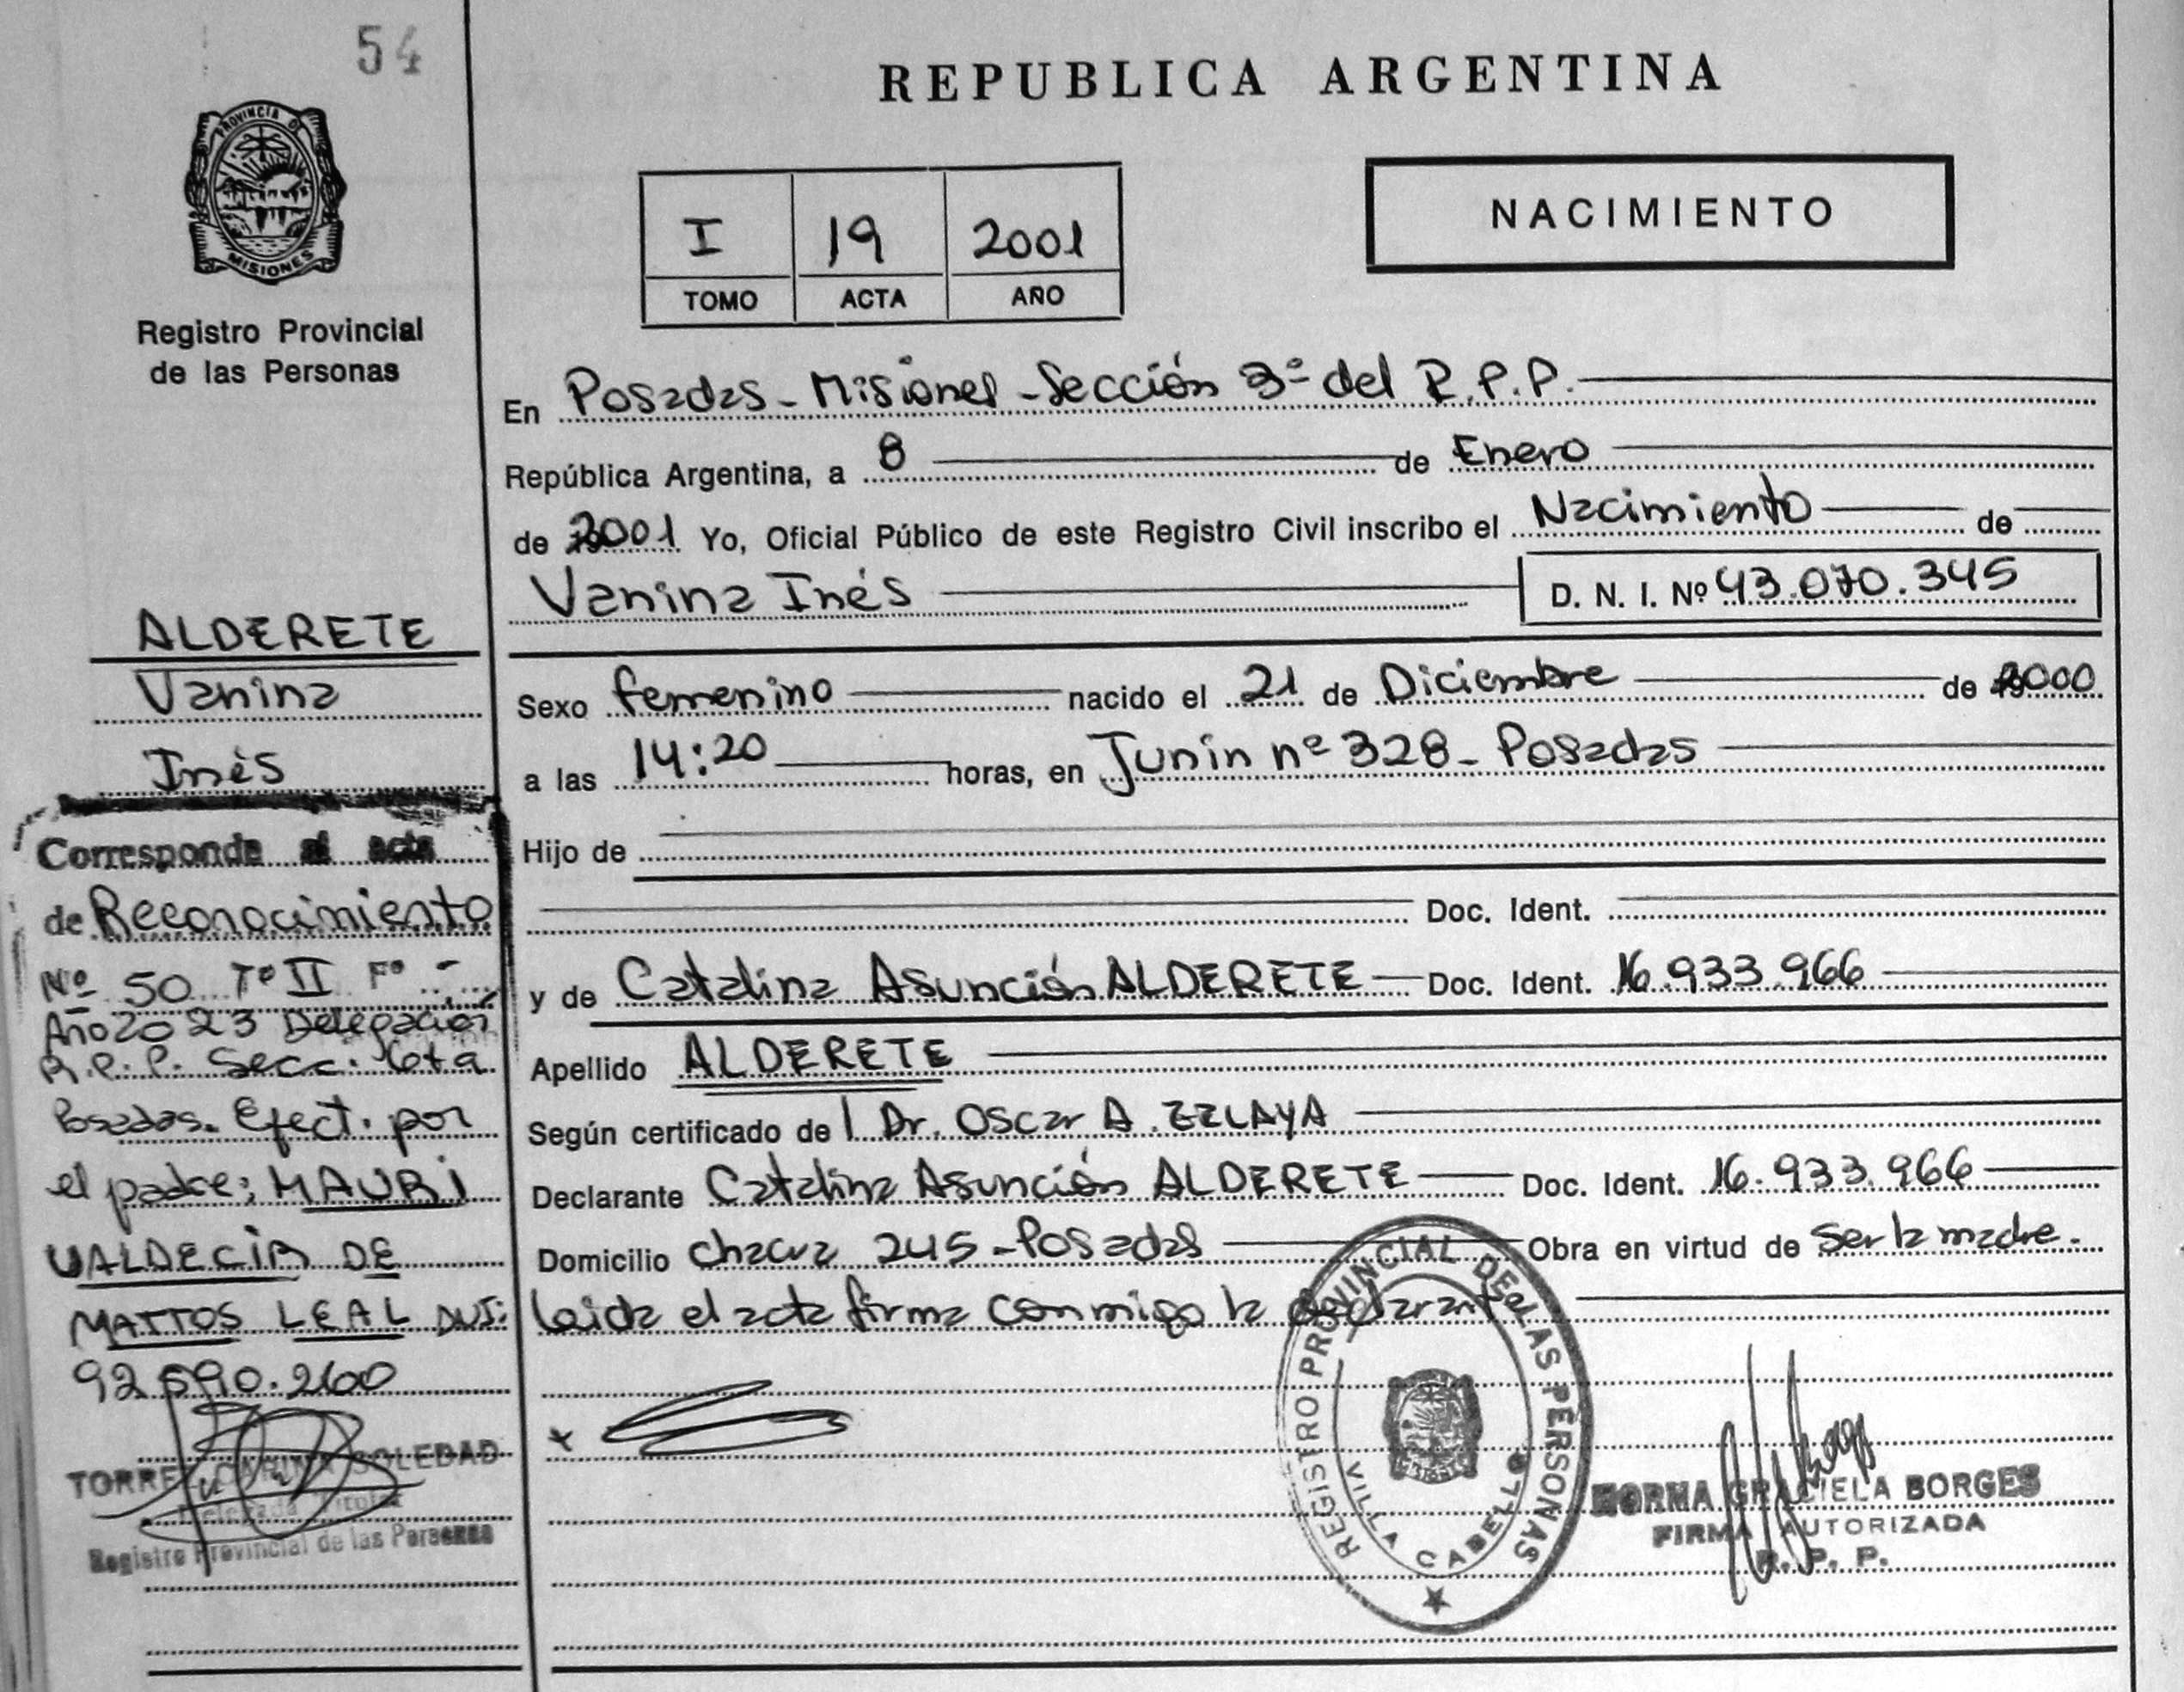 54
PROVINCIA D
MISIONES
Registro Provincial
de las Personas
ALDERETE
Vanina
Inés
Corresponde al acta
de Reconocimiento
Nº 50 Tº II Fº -
Año 2023 Delegación
R.P.P. Secc. 6ta
Posadas. Efect. por
el padre: MAURI
VALDECIR DE
MATTOS LEAL DNI:
92.590.260
TORRES CARINA SOLEDAD
Delegada Titular
Registro Provincial de las Personas
REPUBLICA ARGENTINA
I 19 2001
TOMO ACTA AÑO
NACIMIENTO
En Posadas - Misiones - Sección 3º del R.P.P.
República Argentina, a 8 de Enero
de 2001 Yo, Oficial Público de este Registro Civil inscribo el Nacimiento de
Vanina Inés D. N. I. Nº 43.070.345
Sexo femenino nacido el 21 de Diciembre de 2000
a las 14:20 horas, en Junín nº 328 - Posadas
Hijo de
Doc. Ident.
y de Catalina Asunción ALDERETE Doc. Ident. 16.933.966
Apellido ALDERETE
Según certificado de l Dr. Oscar A. ZELAYA
Declarante Catalina Asunción ALDERETE Doc. Ident. 16.933.966
Domicilio chacra 245 - Posadas Obra en virtud de ser la madre.
Leida el acta firma conmigo la declarante
REGISTRO PROVINCIAL DE LAS PERSONAS
VILLA CABELLO
NORMA GRACIELA BORGES
FIRMA AUTORIZADA
R. P. P.